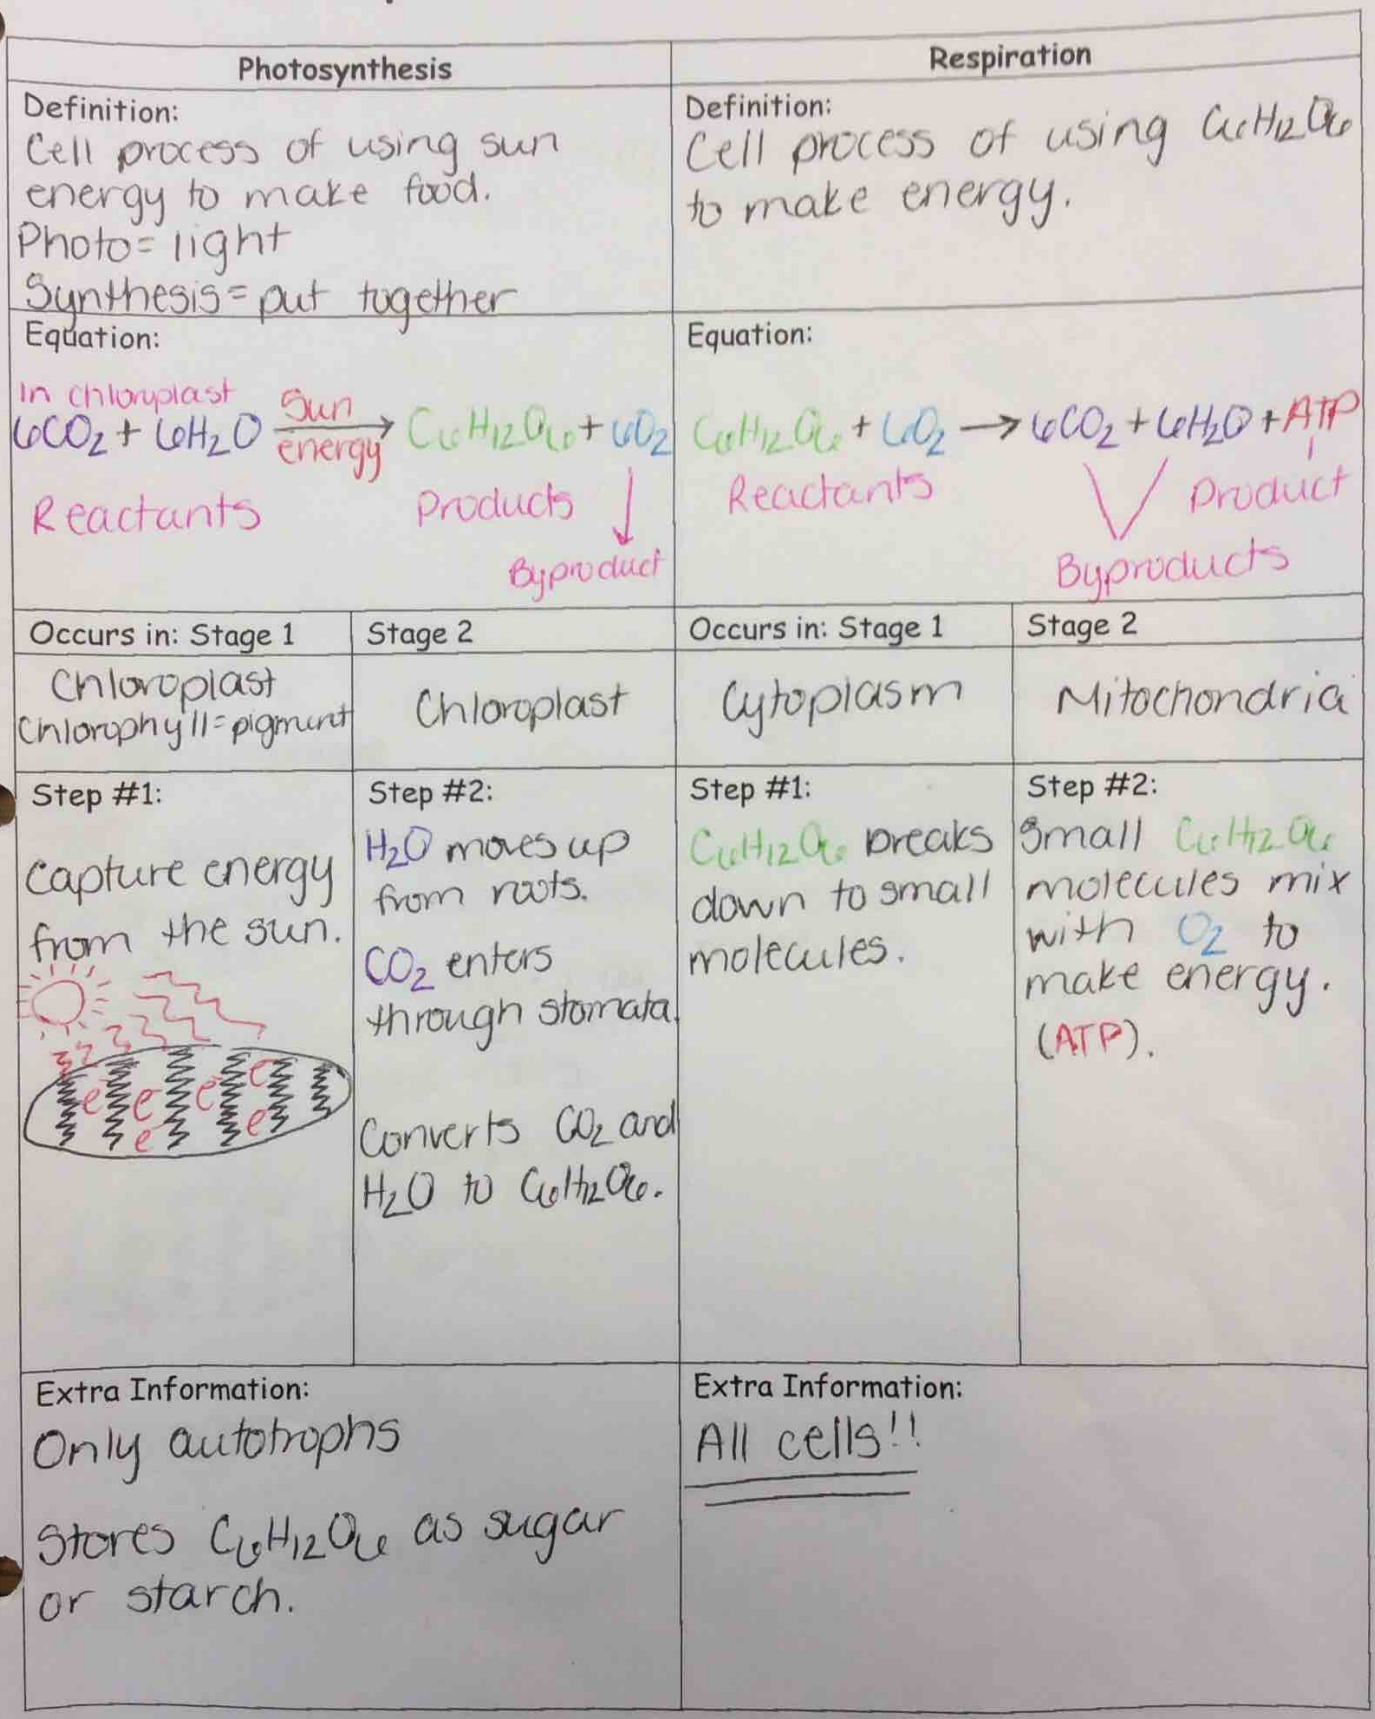 Photosynthesis
Respiration
Definition:
Cell process of using sun
energy to make food.
Photo = light
Synthesis = put together
Definition:
Cell process of using C6H12O6
to make energy.
Equation:
In chloroplast
6CO2 + 6H2O Sun energy → C6H12O6 + 6O2
Reactants Products
Byproduct
Equation:
C6H12O6 + 6O2 → 6CO2 + 6H2O + ATP
Reactants Product
Byproducts
Occurs in: Stage 1
Chloroplast
Chlorophyll = pigment
Stage 2
Chloroplast
Occurs in: Stage 1
Cytoplasm
Stage 2
Mitochondria
Step #1:
Capture energy
from the sun.
e e e e e e
Step #2:
H2O moves up
from roots.
CO2 enters
through stomata.
Converts CO2 and
H2O to C6H12O6.
Step #1:
C6H12O6 breaks
down to small
molecules.
Step #2:
Small C6H12O6
molecules mix
with O2 to
make energy.
(ATP).
Extra Information:
Only autotrophs
Stores C6H12O6 as sugar
or starch.
Extra Information:
All cells!!